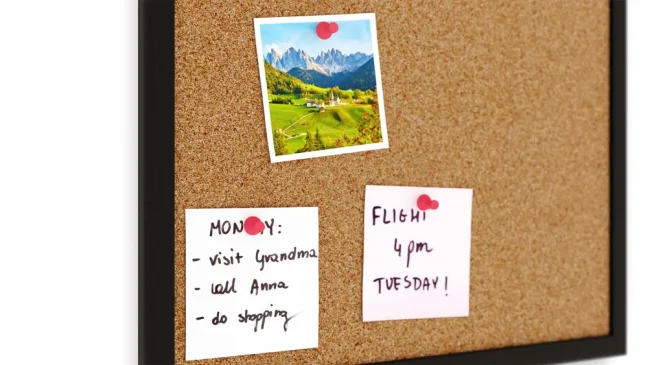 MONDAY:
- visit Grandma
- call Anna
- do shopping
FLIGHT
4 pm
TUESDAY!